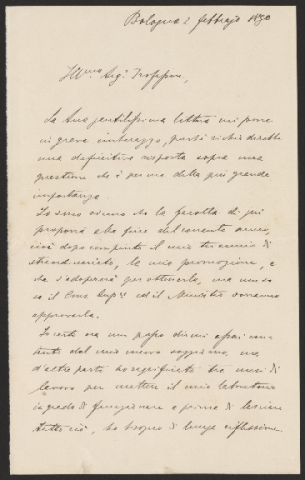 Bologna 1 febbraio 1890
Ill.mo Sig. Professore,
La Sua gentilissima lettera mi pone
in grave imbarazzo, perchè richiederebbe
una definitiva risposta sopra una
questione che è per me della più grande
importanza.
Io sono sicuro che la facoltà di qui
proporrà alla fine del corrente anno,
cioè dopo compiuto il mio triennio di
straordinariato, la mia promozione, e
che s'adoprerà per ottenerla, ma non so
se il Cons. Sup.re ed il Ministro vorranno
approvarla.
Io certo ora non posso dirmi affatto con
tento del mio nuovo soggiorno, ma
d'altra parte ho sacrificato tre mesi di
lavoro per mettere il mio laboratorio
in grado di funzionare e prima di lasciare
tutto ciò, ho bisogno di lunga riflessione.